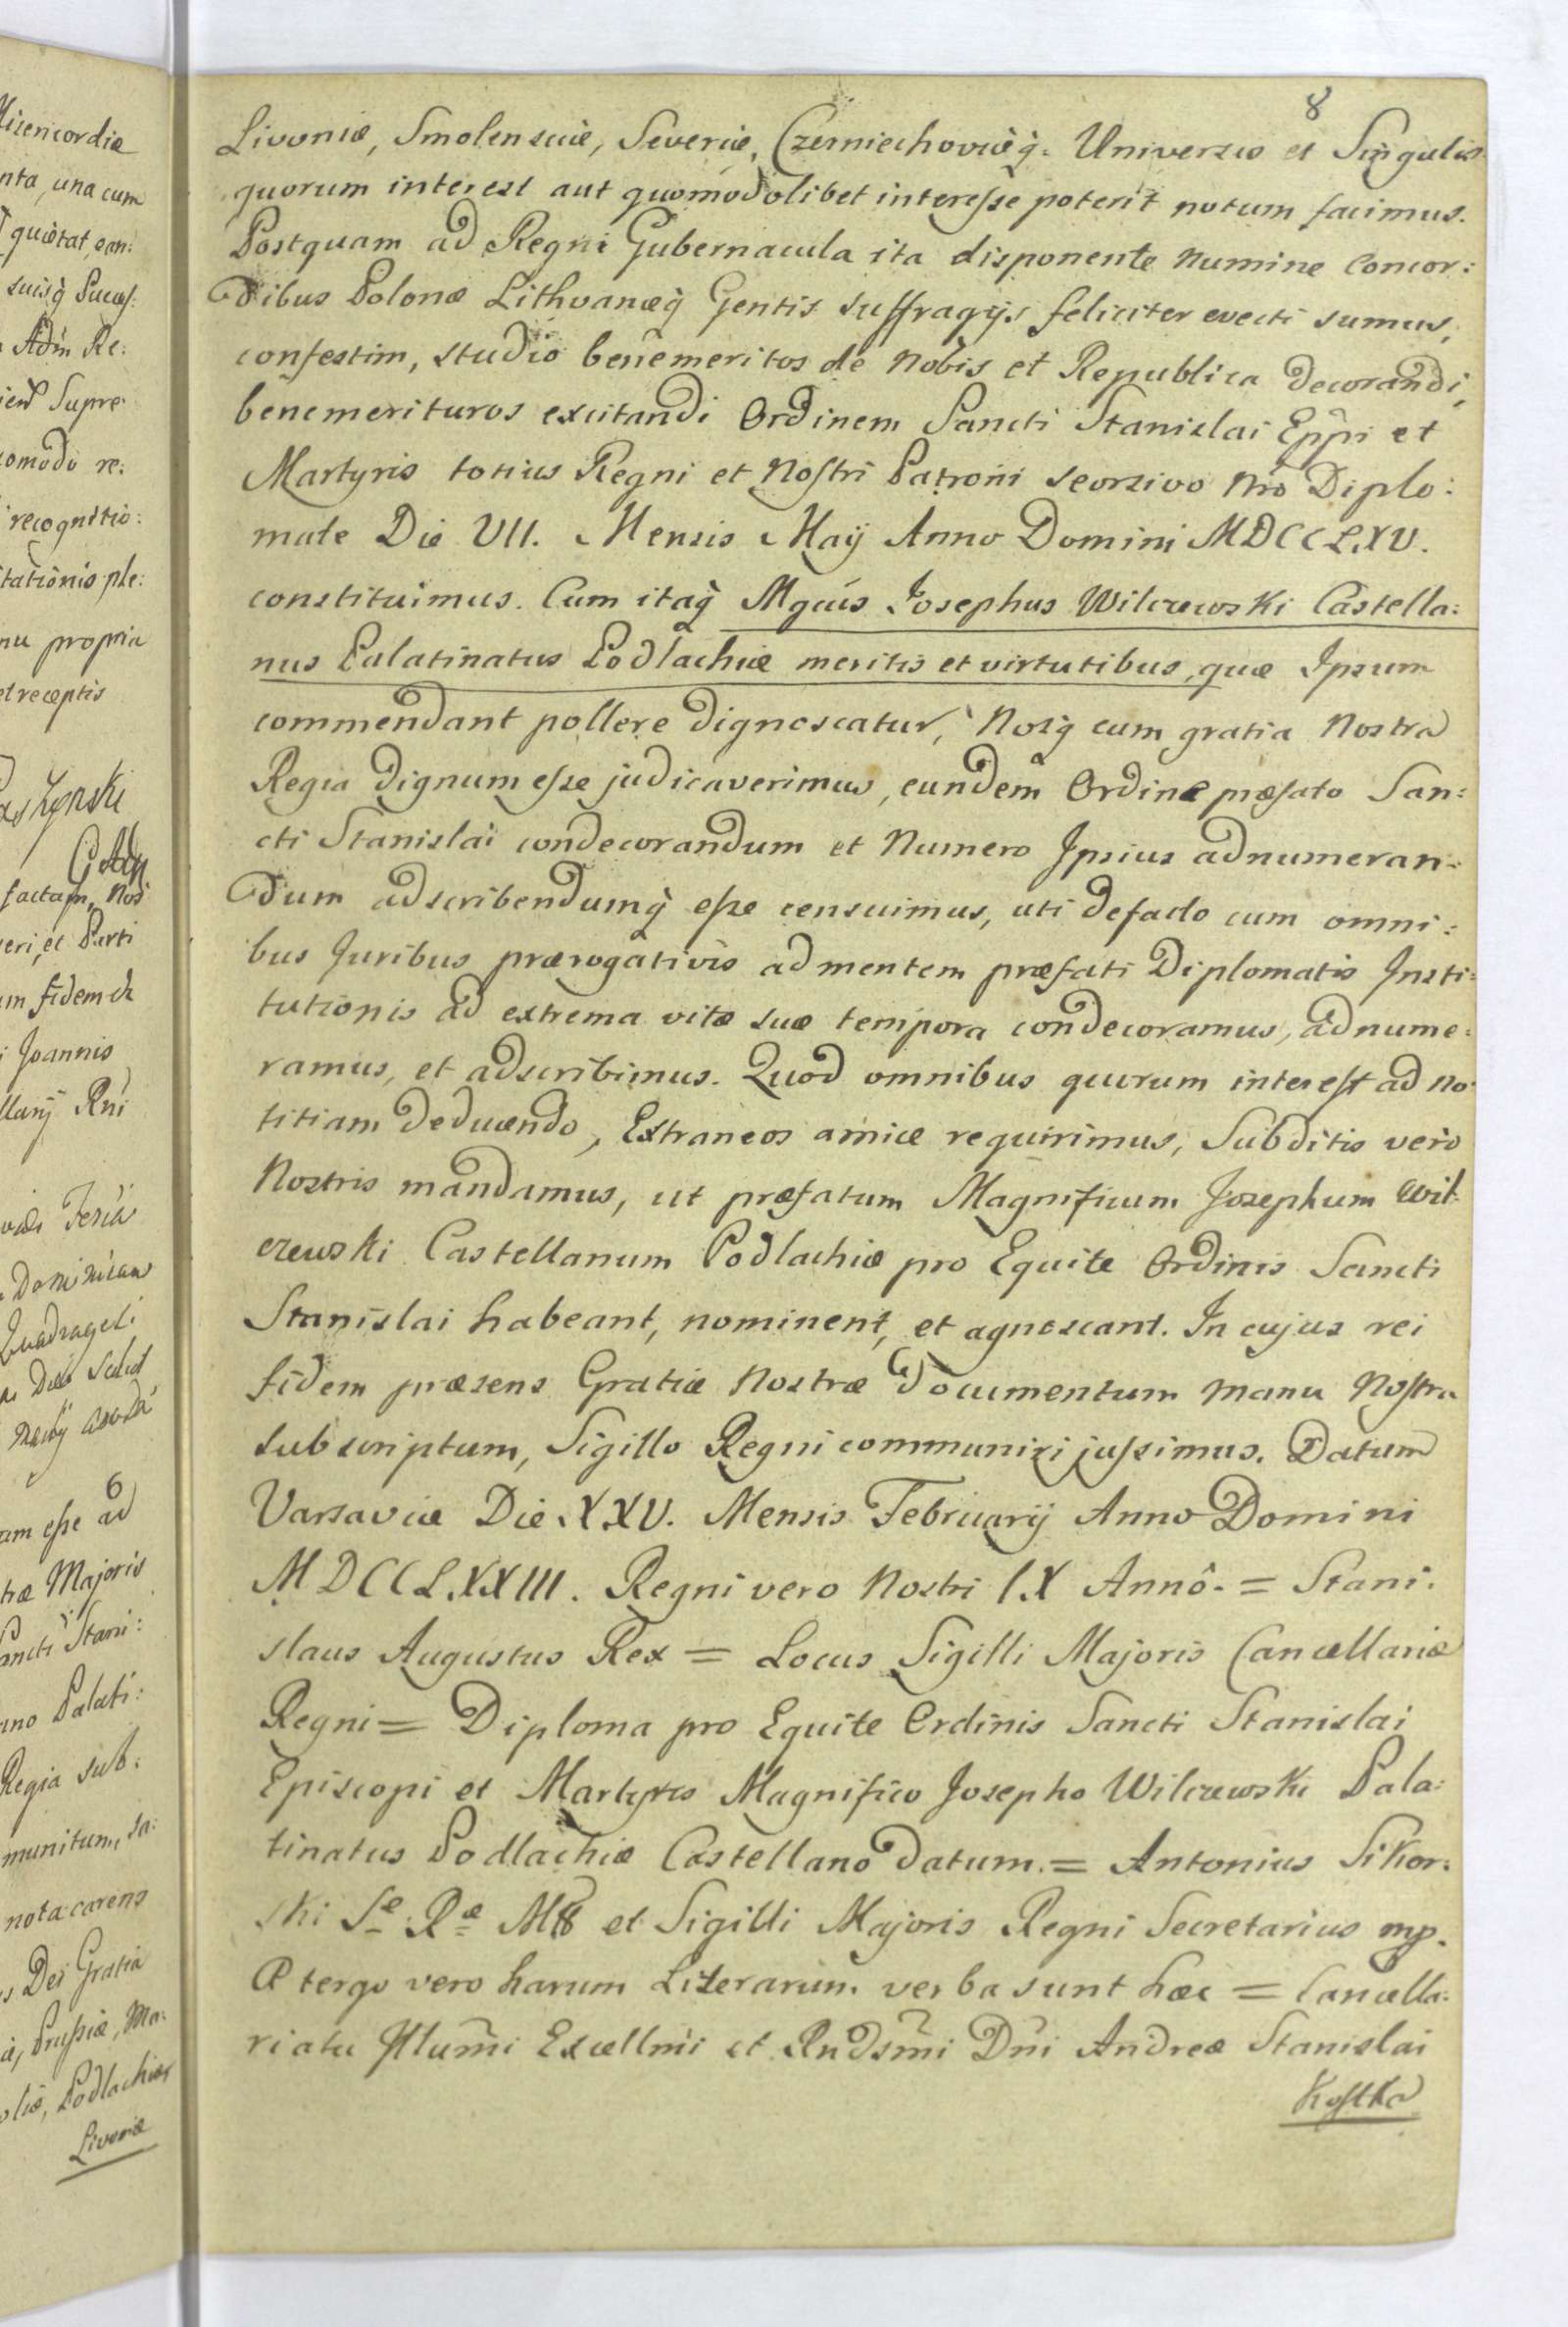 Misericordiæ
nta, una cum
quietat, ean:
suisq̀ Succes:
Adm̃ Re:
Supre:
comodo re:
recognitio:
tationis ple:
nu propria
et receptis
factam, Nos
eri, et Parti
um fidem et
Joannis
llarij Rñi
Feria
Dominicam
Quadragesi
am eſse ad
træ Majoris
Sancti Stani:
ano Palati:
Regia sub:
munitum, sa:
nota carens
s Dei Gratia
æ, Pruſsiæ, Ma:
oliæ, Podlachiæ,
Livoniæ
8
Livoniæ, Smolensciæ, Severiæ, Czerniechoviæq̀. Universis et Singulis
quorum interest aut quomodolibet intereſse poterit notum facimus.
Postquam ad Regni Gubernacula ita disponente Numine Concor:
dibus Polonæ Lithvanæq̀ Gentis suffragijs feliciter evecti sumus,
confestim, studio benemeritos de Nobis et Republica decorandi,
benemerituros excitandi Ordinem Sancti Stanislai Epp̃i et
Martyris totius Regni et Noſtri Patroni seorsivo Nr̃o Diplo:
mate Die VII. Mensis Maij Anno Domini MDCCLXV.
constituimus. Cum itaq̀ Mgcũs Josephus Wilczewski Castella:
nus Palatinatus Podlachiæ meritis et virtutibus, quæ Ipsum
commendant pollere dignoscatur, Nosq̀ eum gratia Nostra
Regia dignum eſse judicaverimus, eundem Ordine præfato San:
cti Stanislai condecorandum et Numero Ipsius adnumeran:
dum adscribendumq̀ eſse censuimus, uti defacto cum omni:
bus Juribus prærogativis ad mentem præfati Diplomatis Insti:
tutionis ad extrema vitæ suæ tempora condecoramus, adnume:
ramus, et adscribimus. Quod omnibus quorum intereſt ad no:
titiam deducendo, Extraneos amice requirimus, Subditis vero
Nostris mandamus, ut præfatum Magnificum Josephum Wil:
czewski Castellanum Podlachiæ pro Equite Ordinis Sancti
Stanislai habeant, nominent, et agnoscant. In cujus rei
fidem præsens Gratiæ Nostræ documentum manu Noſtra
subscriptum, Sigillo Regni communiri juſsimus. Datum
Varsaviæ Die XXV. Mensis Februarij Anno Domini
MDCCLXXIII. Regni vero Nostri IX Annô. = Stani:
slaus Augustus Rex = Locus Sigilli Majoris Cancellariæ
Regni = Diploma pro Equite Ordinis Sancti Stanislai
Episcopi et Martyris Magnifico Josepho Wilczewski Pala:
tinatus Podlachiæ Castellano datum. = Antonius Sikor:
ski Sæ Ræ Mtis et Sigilli Majoris Regni Secretarius mp.
A tergo vero harum Literarum verba sunt hæc = Cancella:
riatu Illum̃i Excellm̃i et Rndsm̃i Dñi Andreæ Stanislai
Koſtka